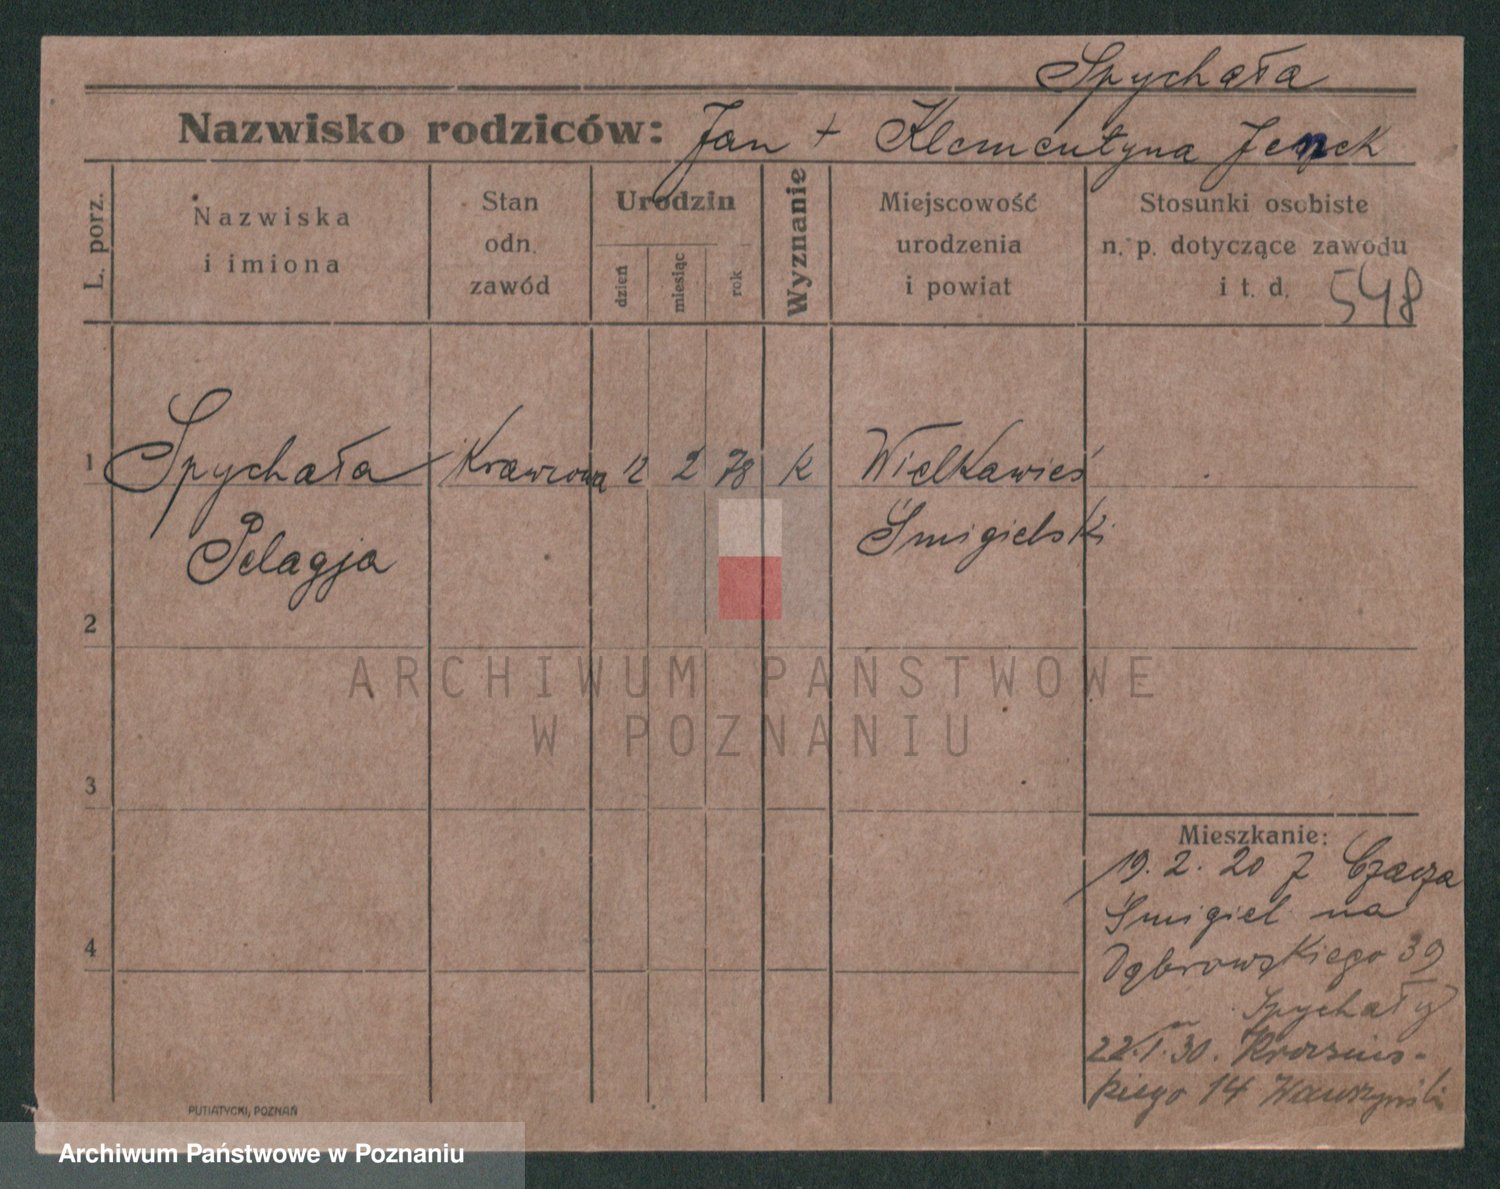 Spychała
Nazwisko rodziców: Jan + Klementyna
L. porz.
Nazwiska
i imiona
Stan
odn.
zawód
Urodzin
dzień
miesiąc
rok
Wyznanie
Miejscowość
urodzenia
i powiat
Stosunki osobiste
n. p. dotyczące zawodu
i t. d. 548
1 Spychała Krawcowa 12 2 78 k Wielkawieś
Pelagja Śmigielski
2
ARCHIWUM PAŃSTWOWE
W POZNANIU
3
Mieszkanie:
19. 2. 20 z Czacza
Śmigiel na
4
Dąbrowskiego 39
Spychały
22.1.30.
14
PUTIATYCKI, POZNAŃ
Archiwum Państwowe w Poznaniu